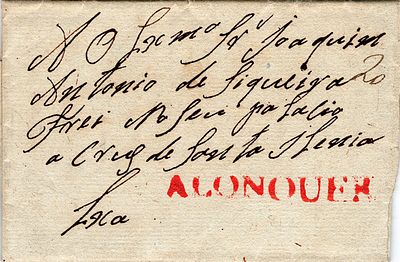 A O Exmo Sr Joaquim
Antonio de Siqueira 20
Frei No Seu palacio
a Cruz de Santa Ilenia
ALONQUER
Lxa